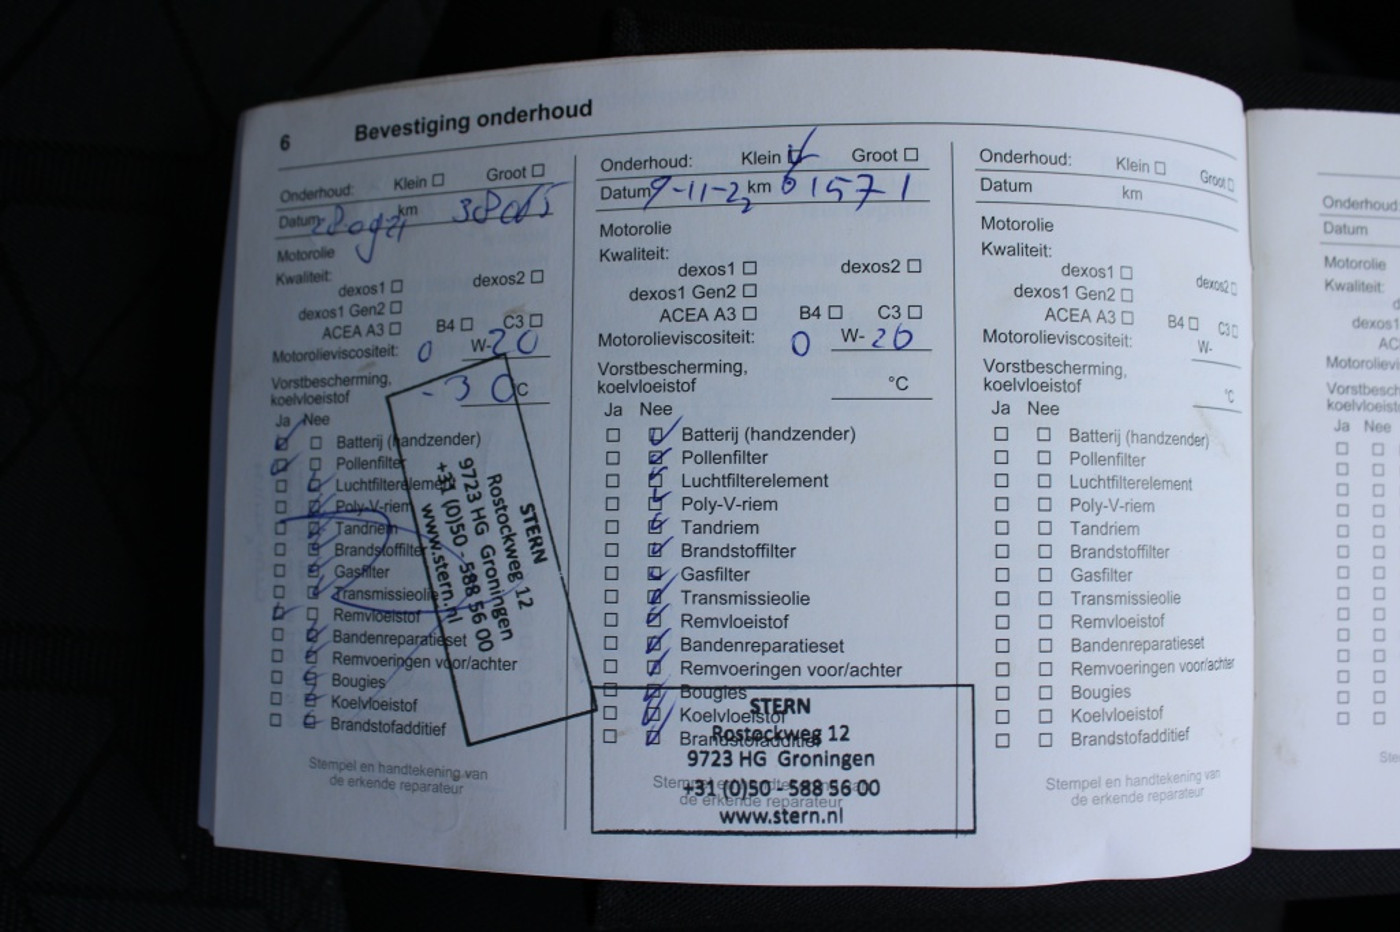 6 Bevestiging onderhoud
Onderhoud: Klein ☐ Groot ☐
Datum km
Motorolie
Kwaliteit:
dexos1 ☐ dexos2 ☐
dexos1 Gen2 ☐
ACEA A3 ☐ B4 ☐ C3 ☐
Motorolieviscositeit: 0 W-20
Vorstbescherming,
koelvloeistof -30 °C
Ja Nee
Batterij (handzender)
Pollenfilter
Luchtfilterelement
Poly-V-riem
Tandriem
Brandstoffilter
Gasfilter
Transmissieolie
Remvloeistof
Bandenreparatieset
Remvoeringen voor/achter
Bougies
Koelvloeistof
Brandstofadditief
STERN
Rostockweg 12
9723 HG Groningen
+31 (0)50 - 588 56 00
www.stern.nl
Stempel en handtekening van
de erkende reparateur
Onderhoud: Klein ☑ Groot ☐
Datum 9-11-22 km 61571
Motorolie
Kwaliteit:
dexos1 ☐ dexos2 ☐
dexos1 Gen2 ☐
ACEA A3 ☐ B4 ☐ C3 ☐
Motorolieviscositeit: 0 W-20
Vorstbescherming,
koelvloeistof °C
Ja Nee
Batterij (handzender)
Pollenfilter
Luchtfilterelement
Poly-V-riem
Tandriem
Brandstoffilter
Gasfilter
Transmissieolie
Remvloeistof
Bandenreparatieset
Remvoeringen voor/achter
Bougies
Koelvloeistof
Brandstofadditief
STERN
Rostockweg 12
9723 HG Groningen
+31 (0)50 - 588 56 00
www.stern.nl
Stempel en handtekening van
de erkende reparateur
Onderhoud: Klein ☐ Groot ☐
Datum km
Motorolie
Kwaliteit:
dexos1 ☐ dexos2 ☐
dexos1 Gen2 ☐
ACEA A3 ☐ B4 ☐ C3 ☐
Motorolieviscositeit: W-
Vorstbescherming,
koelvloeistof °C
Ja Nee
Batterij (handzender)
Pollenfilter
Luchtfilterelement
Poly-V-riem
Tandriem
Brandstoffilter
Gasfilter
Transmissieolie
Remvloeistof
Bandenreparatieset
Remvoeringen voor/achter
Bougies
Koelvloeistof
Brandstofadditief
Stempel en handtekening van
de erkende reparateur
Onderhoud:
Datum
Motorolie
Kwaliteit:
dexos1
Ja Nee